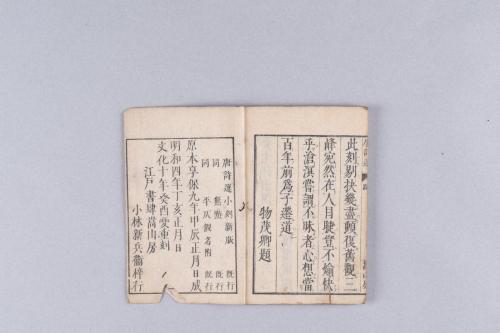 此刻剔抉幾盡頓復舊觀三
峰宛然在人目睫豈不愉快
乎滄溟嘗謂不昧者心想當
百年前爲予遷道
物茂卿題
唐詩選小刻新版 既行
同 無點 既行
同 平仄假名附 既行
原本享保九年甲辰正月日成
明和四年丁亥正月日
文化十年癸酉夏重刻
江戸書肆嵩山房
小林新兵衞梓行